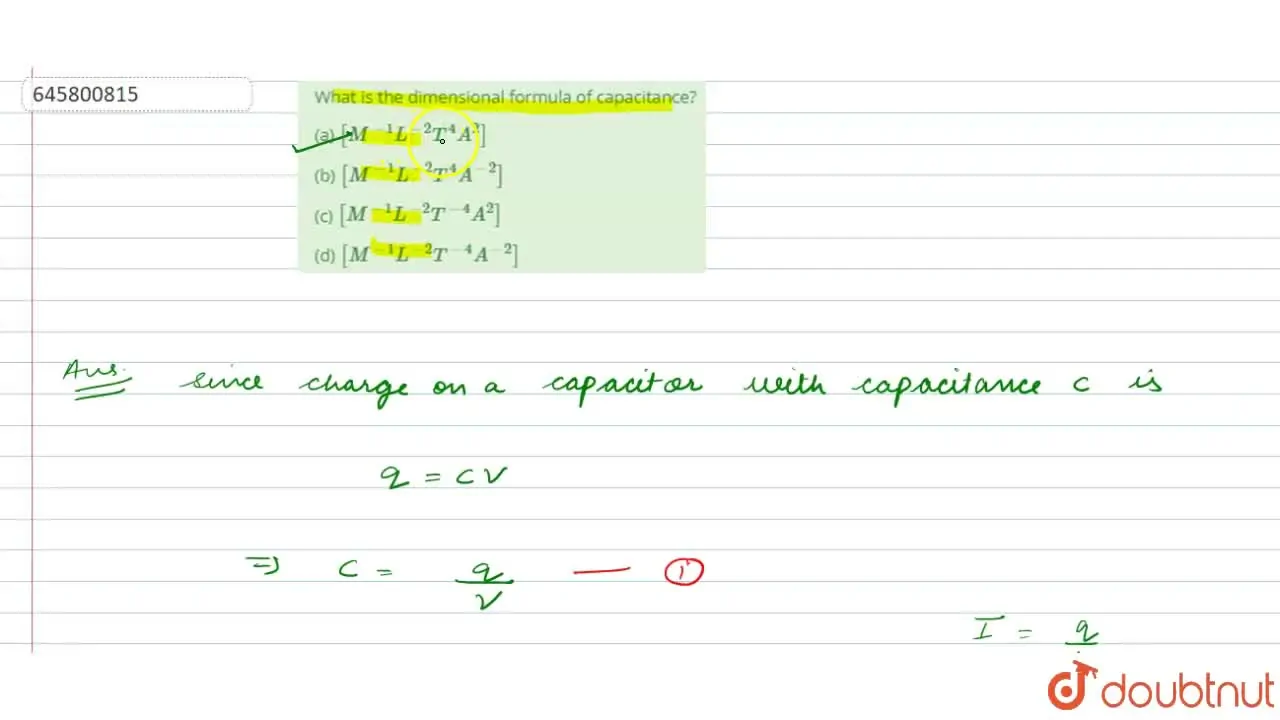 645800815
What is the dimensional formula of capacitance?
(a) [M⁻¹L⁻²T⁴A²]
(b) [M⁻¹L⁻²T⁴A⁻²]
(c) [M⁻¹L⁻²T⁻⁴A²]
(d) [M⁻¹L⁻²T⁻⁴A⁻²]
Ans.
since charge on a capacitor with capacitance c is
q = CV
=> C = q/V — (1)
I = q
doubtnut